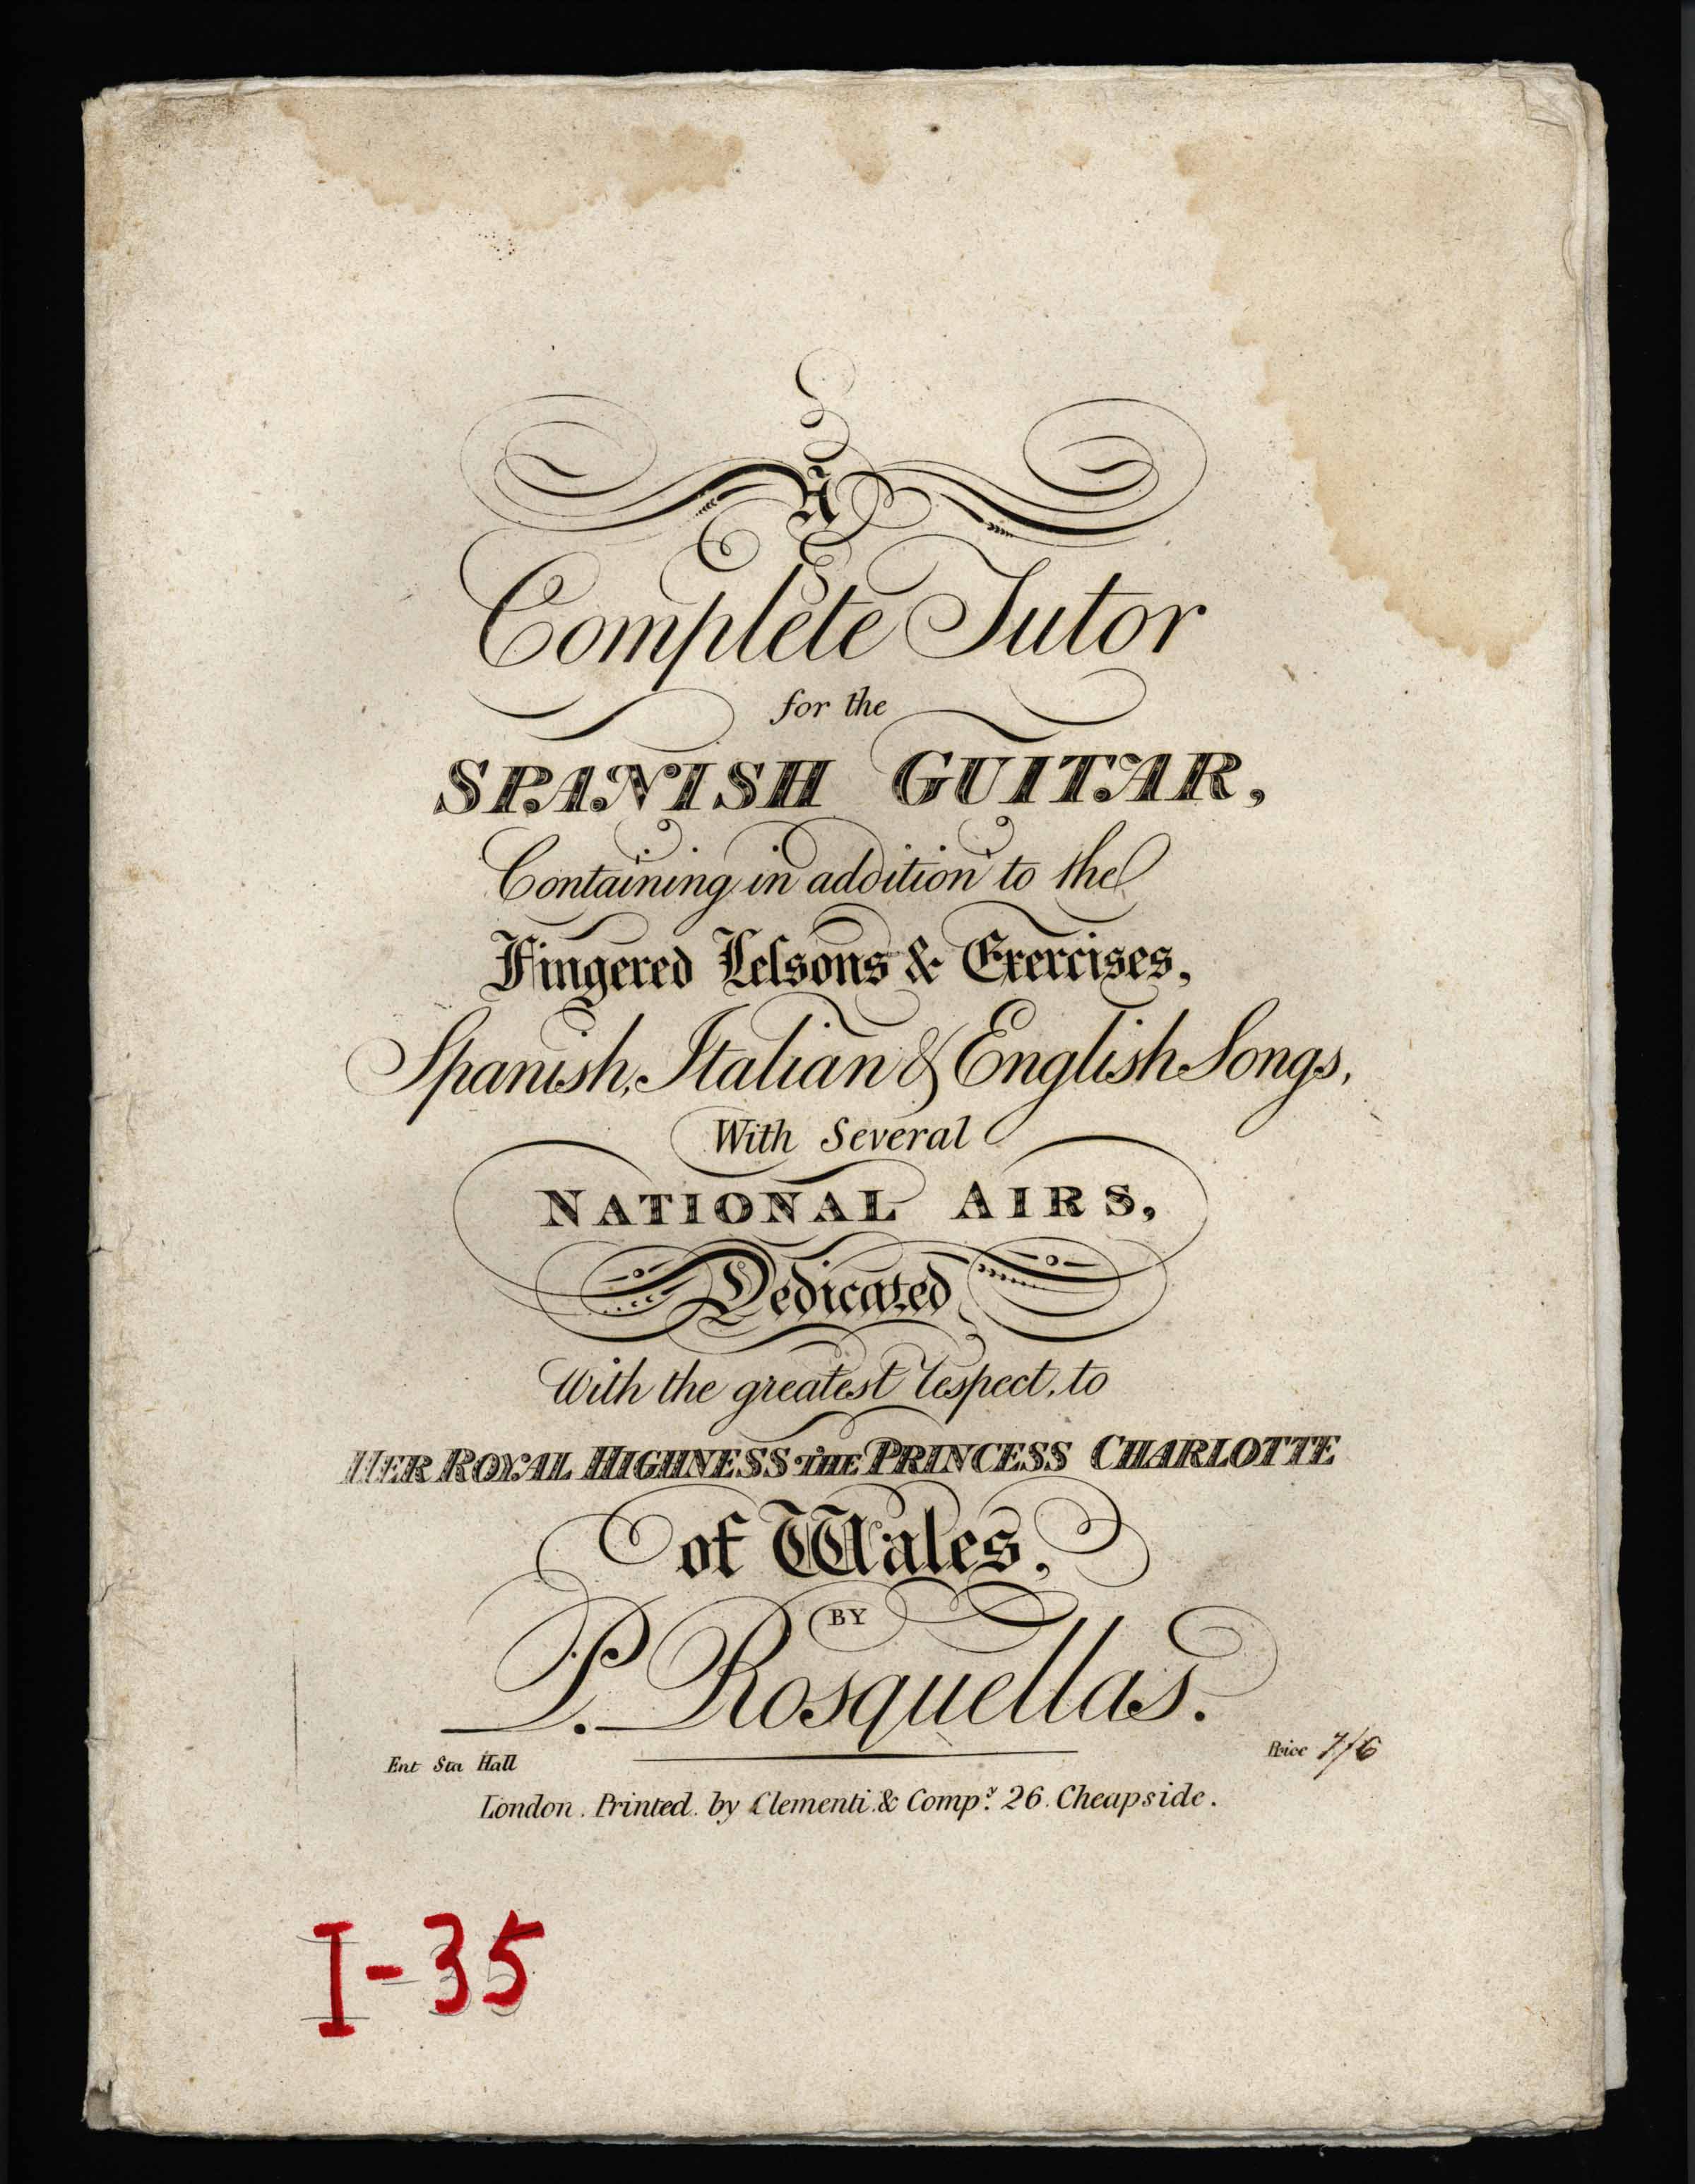 A
Complete Tutor
for the
SPANISH GUITAR,
Containing in addition to the
Fingered Leſsons & Exercises,
Spanish, Italian & English Songs,
With Several
NATIONAL AIRS,
Dedicated
With the greatest respect, to
HER ROYAL HIGHNESS THE PRINCESS CHARLOTTE
of Wales,
BY
P. Rosquellas.
Ent Sta Hall
Price 7/6
London. Printed by Clementi & Compy. 26. Cheapside.
I-35